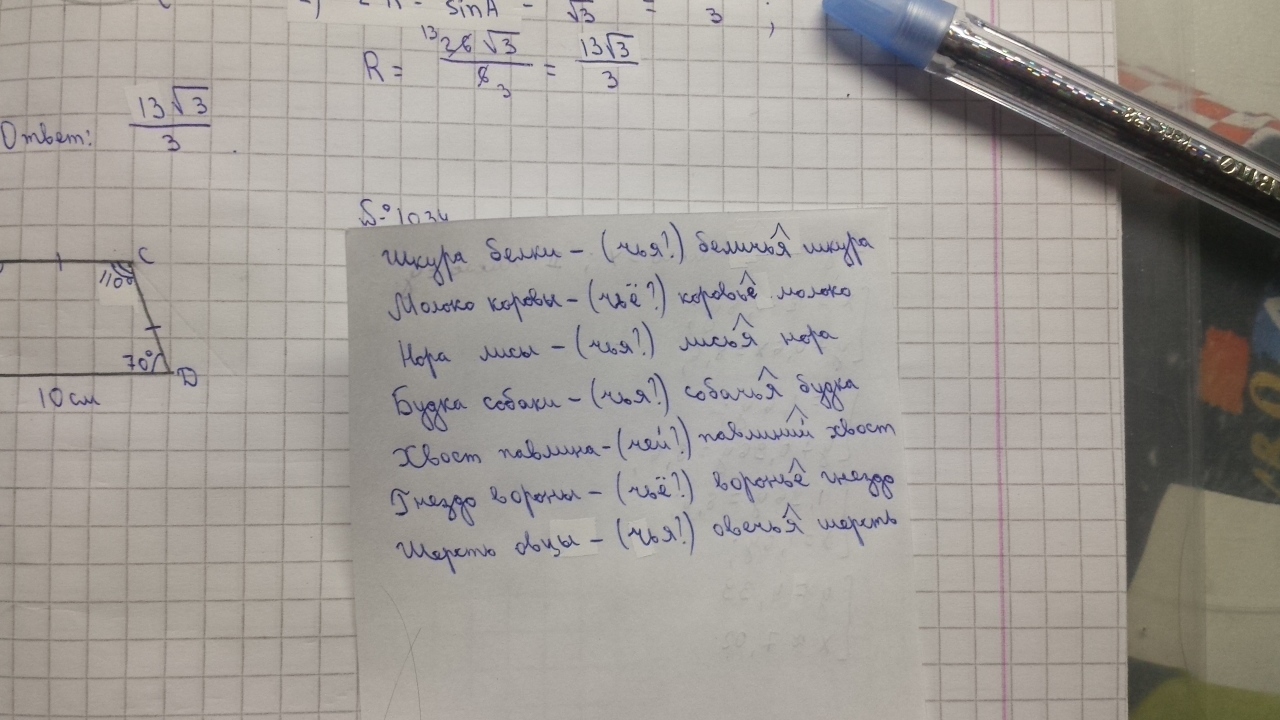 sin A √3 3 ;
R = 13 26 √3 / 6 3 = 13√3 / 3
Ответ: 13√3 / 3 .
№ 1034
C
110°
70°
D
10 см
Шкура белки – (чья?) беличья шкура
Молоко коровы – (чьё?) коровье молоко
Нора лисы – (чья?) лисья нора
Будка собаки – (чья?) собачья будка
Хвост павлина – (чей?) павлиний хвост
Гнездо вороны – (чьё?) воронье гнездо
Шерсть овцы – (чья?) овечья шерсть